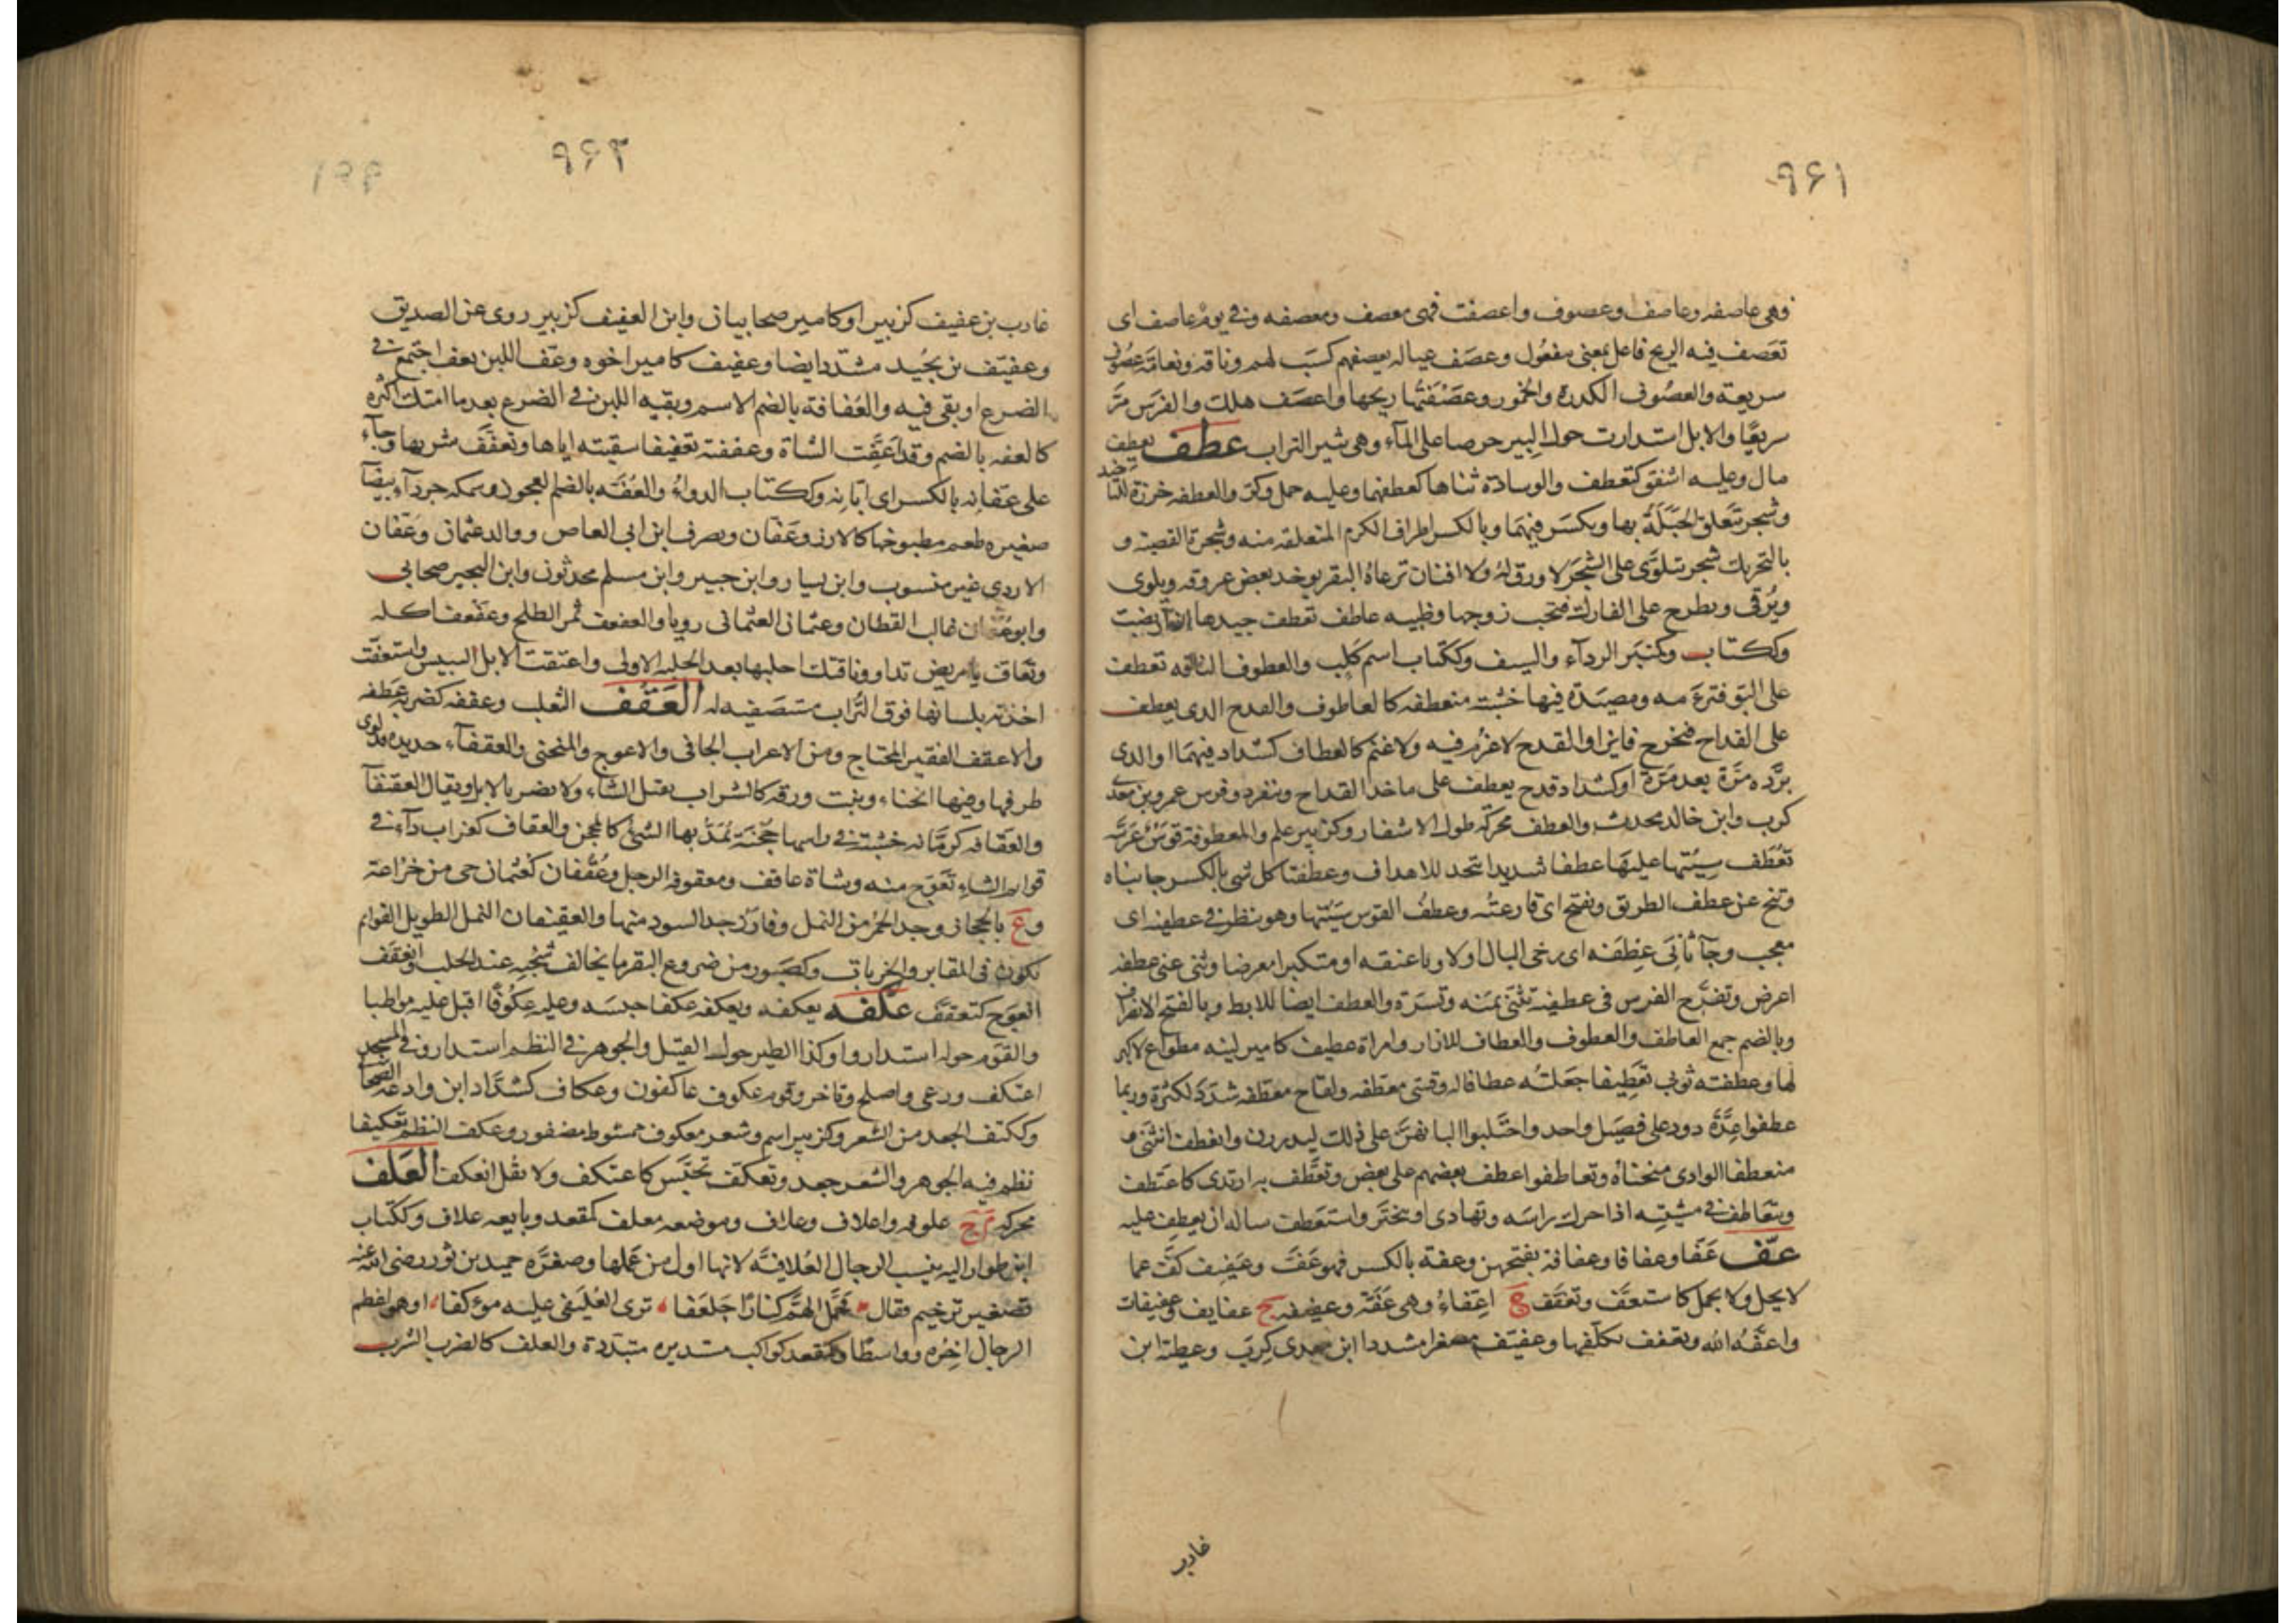 ۹۶۱
وهی عاصفه وعاصف وعصوف واعصفت فهی معصف ومعصفه وفی یوم عاصف ای
تعصف فیه الریح فاعل بمعنی مفعول وعصف عیاله یعصفهم کسب لهم وناقه ونعامة عصوف
سریعة والعصوف الکدرة والخمور وعصفتها ریحها واعصف هلك والفرس مرّ
سریعًا والابل استدارت حول البیر حرصا علی المآء وهی تثیر التراب عطف یعطف
مال وعلیه اشفق کتعطف والوسادة ثناها کعطفها وعلیه حمل وکر والعطفه خرزة للتاخید
وشجر تتعلق الحبلة بها ویکسر فیهما وبالکسر اطراف الکرم المتعلقه منه وشجرة القصبة و
بالتحریك شجر تتلوی علی الشجر لا ورق له ولا افنان ترعاه البقر یوخد بعض عروقه ویلوی
ویرقی ویطرح علی الفارك فتحب زوجها وظبیه عاطف تعطف جیدها اذا ربضت
وککتاب وکمنبر الردآء والسیف وککتاب اسم کلب والعطوف الناقه تعطف
علی البو فترءمه ومصیدة فیها خشبة منعطفه کالعاطوف والقدح الدی یعطف
علی القداح فیخرج فایزا والقدح لا غرم فیه ولا غنم کالعطاف کشداد فیهما او الدی
یرده مرة بعد مرة او کشداد قدح یعطف علی ماخد القداح وینفرد وفرس عمرو بن معدی
کرب وابن خالد محدث والعطف محرکة طول الاشفار وکزبیر علم والمعطوفة قوس عربیة
تعطف سیتها علیها عطفا شدیدا تتحد للاهداف وعطفتا کل شی بالکسر جانباه
وتنح عن عطف الطریق ویفتح ای قارعته وعطف القوس سیتها وهو ینظر فی عطفیه ای
معجب وجآ ثانی عطفه ای رخی البال او لاویا عنقه او متکبرا معرضا وثنی عنی عطفه
اعرض وتفرح الفرس فی عطفیه تثنی یمنه ویسرة والعطف ایضا للابط وبالفتح الانصراف
وبالضم جمع العاطف والعطوف والعطاف للازار وامراة عطیف کامیر لینه مطواع لاکبر
لها وعطفته ثوبی تعطیفا جعلته عطافا له وقسی معطفه ولقاح معطفه شدد لکثرة وربما
عطفوا عدة دود علی فصیل واحد واحتلبوا البانهن علی ذلك لیدررن وانعطف انثنی و
منعطف الوادی منحناه وتعاطفوا عطف بعضهم علی بعض وتعطف به ارتدی کاعتطف
ویتعاطف فی مشیته اذا حرك راسه وتهادی او تبختر واستعطف ساله ان یعطف علیه
عف عفا وعفافا وعفافة بفتحهن وعفة بالکسر فهو عف وعفیف کف عما
لا یحل ولا یجمل کاستعف وتعفف ج اعفاء وهی عفة وعفیفه ج عفایف وعفیفات
واعفه الله وتعفف تکلفها وعفیف مصغرا مشددا ابن معدی کرب وعطیة ابن
غارب
۹۶۲
غارب بن عفیف کزبیر او کامیر صحابیان وابن العفیف کزبیر روی عن الصدیق
وعفیف بن بجید مشددا ایضا وعفیف کامیر اخوه وعف اللبن یعف اجتمع فی
الضرع او بقی فیه والعفافة بالضم الاسم وبقیه اللبن فی الضرع بعد ما امتك اکثره
کالعفه بالضم وقد اعفت الشاة وعففته تعفیفا سقیته ایاها وتعفف شربها وجآء
علی عفانه بالکسر ای ابانه وککتاب الدواء والعفة بالضم العجوز وسمکه جردآء بیضآ
صغیره طعم مطبوخها کالارز وعفان ویصرف ابن ابی العاص ووالد عثمان وعفان
الازدی غیر منسوب وابن سیار وابن جبیر وابن مسلم محدثون وابن البجیر صحابی
وابو عفان غالب القطان وعثمان العثمانی رویا والعفعف ثمر الطلح وعفعف اکله
وتعاف یا مریض تداو وناقتك احلبها بعد الحلبه الاولی واعتفت الابل الیبیس واستعفت
اخذته بلسانها فوق التراب مستصفیه له العقف الثعلب وعقفه کضربه عطفه
والاعقف الفقیر المحتاج ومن الاعراب الجافی والاعوج والمنحنی والعقفآء حدیده قد لوی
طرفها وفیها انحناء ونبت ورقه کالسداب یقتل الشاء ولا یضر بالابل ویقال العقیفآ
والعقافه کرمانه خشبة فی راسها حجنة یمد بها الشئ کالمحجن والعقاف کغراب دآء فی
قوایم الشاء تعوج منه وشاة عاقف ومعقوفة الرجل وعقفان کعثمان حی من خزاعة
و ع بالحجاز وجد الحمر من النمل وفازر جد السود منها والعقیفان النمل الطویل القوایم
تکون فی المقابر والخربات وکصبور من ضروع البقر ما یخالف شخبه عند الحلب وانعقف
انعوج کتعقف عکفه یعکفه ویعکفه عکفا حبسه وعلیه عکوفا اقبل علیه مواظبا
والقوم حوله استداروا وکذا الطیر حول القتیل والجوهر فی النظم استدار وفی المسجد
اعتکف ورعی واصلح وتاخر وقوم عکوف عاکفون وعکاف کشداد ابن وداعه الصحابی
وککتف الجعد من الشعر وکزبیر اسم وشعر معکوف ممشوط مضفور وعکف النظم تعکیفا
نظم فیه الجوهر والشعر جعد وتعکف تحبس کاعتکف ولا تقل انعکف العلف
محرکه م ج علوفه واعلاف وعلاف وموضعه معلف کمقعد وبایعه علاف وککتاب
ابن طوار الیه ینسب الرحال العلافیة لانها اول من عملها وصغره حمید بن ثور رضی الله عنه
تصغیر ترخیم فقال فحمل الهم کنازا جلعفا تری العلیفی علیه موکفا او هو اعظم
الرحال اخره وواسطا وکمقعد کواکب مستدیره متبددة والعلف کالضرب الشرب